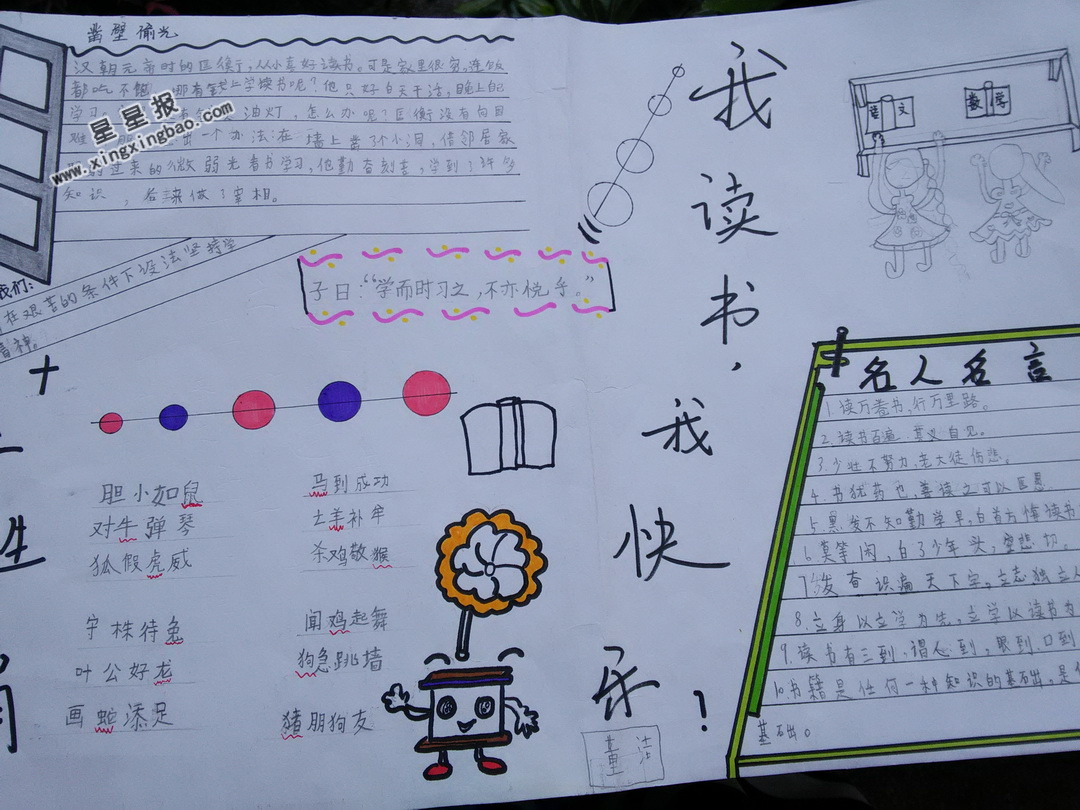 凿壁偷光
汉朝元帝时的匡衡,从小喜好读书。可是家里很穷,连饭
都吃不饱,哪有钱上学读书呢?他只好白天干活,晚上自
学习 油灯,怎么办呢?匡衡没有向困
难 出一个办法:在墙上凿了个小洞,借邻居家
过来的微弱光看书学习,他勤奋刻苦,学到了许多
知识,后来做了宰相。
星星报
www.xingxingbao.com
我们:
在艰苦的条件下设法坚持学
精神。
子曰:“学而时习之,不亦悦乎。”
十
生
肖
胆小如鼠
对牛弹琴
狐假虎威
守株待兔
叶公好龙
画蛇添足
马到成功
亡羊补牢
杀鸡敬猴
闻鸡起舞
狗急跳墙
猪朋狗友
我读书,我快乐!
董洁
语文
数学
名人名言
1.读万卷书,行万里路。
2.读书百遍,其义自见。
3.少壮不努力,老大徒伤悲。
4.书犹药也,善读之可以医愚
5.黑发不知勤学早,白首方悔读书
6.莫等闲,白了少年头,空悲切。
7.发奋识遍天下字,立志独立人
8.立身以立学为先,立学以读书为
9.读书有三到,谓心到,眼到,口到
10.书籍是任何一种知识的基础,是
基础。